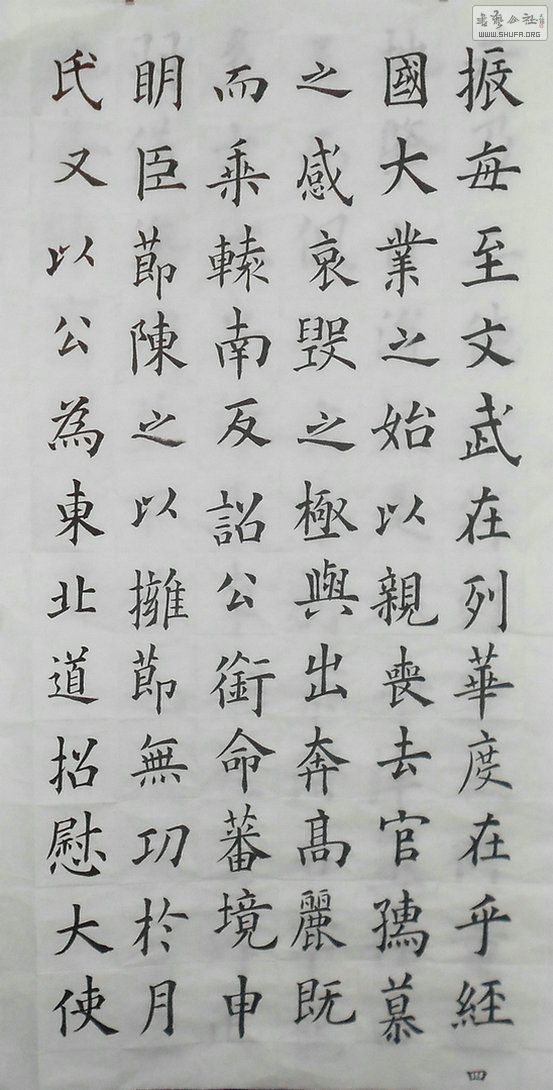 書藝公社
WWW.SHUFA.ORG
振每至文武在列華度在乎經
國大業之始以親喪去官孺慕
之感哀毀之極與出奔高麗既
而乘轅南反詔公銜命蕃境申
明臣節陳之以擁節無功於月
氏又以公為東北道招慰大使
四